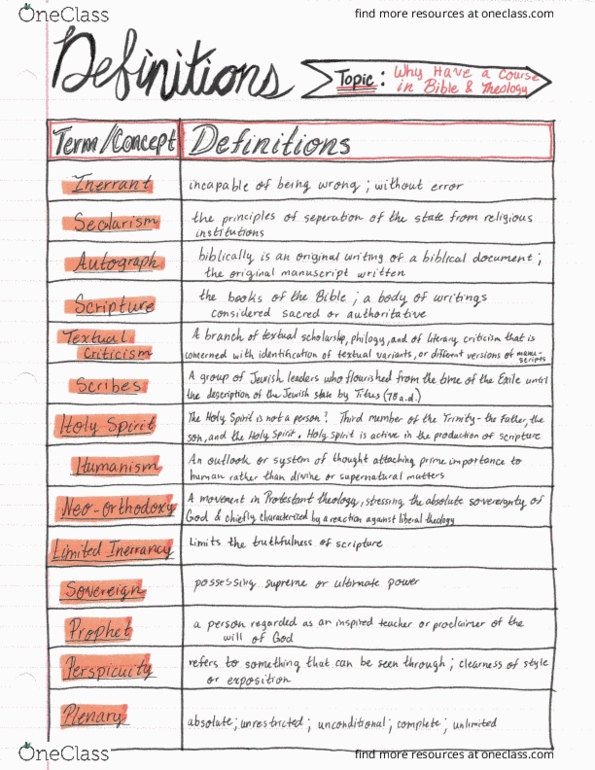 OneClass
find more resources at oneclass.com
Definitions
Topic: Why Have a Course
in Bible & Theology
Term/Concept Definitions
Inerrant incapable of being wrong; without error
Secularism the principles of seperation of the state from religious
institutions
Autograph biblically is an original writing of a biblical document;
the original manuscript written
Scripture the books of the Bible; a body of writings
considered sacred or authoritative
Textual A branch of textual scholarship, philogy, and of literary criticism that is
Criticism concerned with identification of textual variants, or different versions of manu-
scripts
Scribes A group of Jewish leaders who flourished from the time of the Exile until
the description of the Jewish state by Titus (70 a.d.)
Holy Spirit The Holy Spirit is not a person? Third member of the Trinity - the Father, the
son, and the Holy Spirit. Holy spirit is active in the production of scripture
Humanism An outlook or system of thought attaching prime importance to
human rather than divine or supernatural matters
Neo-Orthodoxy A movement in Protestant theology, stressing the absolute sovereignty of
God & chiefly characterized by a reaction against liberal theology
Limited Inerrancy Limits the truthfulness of scripture
Sovereign possessing supreme or ultimate power
Prophet a person regarded as an inspired teacher or proclaimer of the
will of God
Perspicuity refers to something that can be seen through; clearness of style
or exposition
Plenary absolute; unrestricted; unconditional; complete; unlimited
OneClass
find more resources at oneclass.com